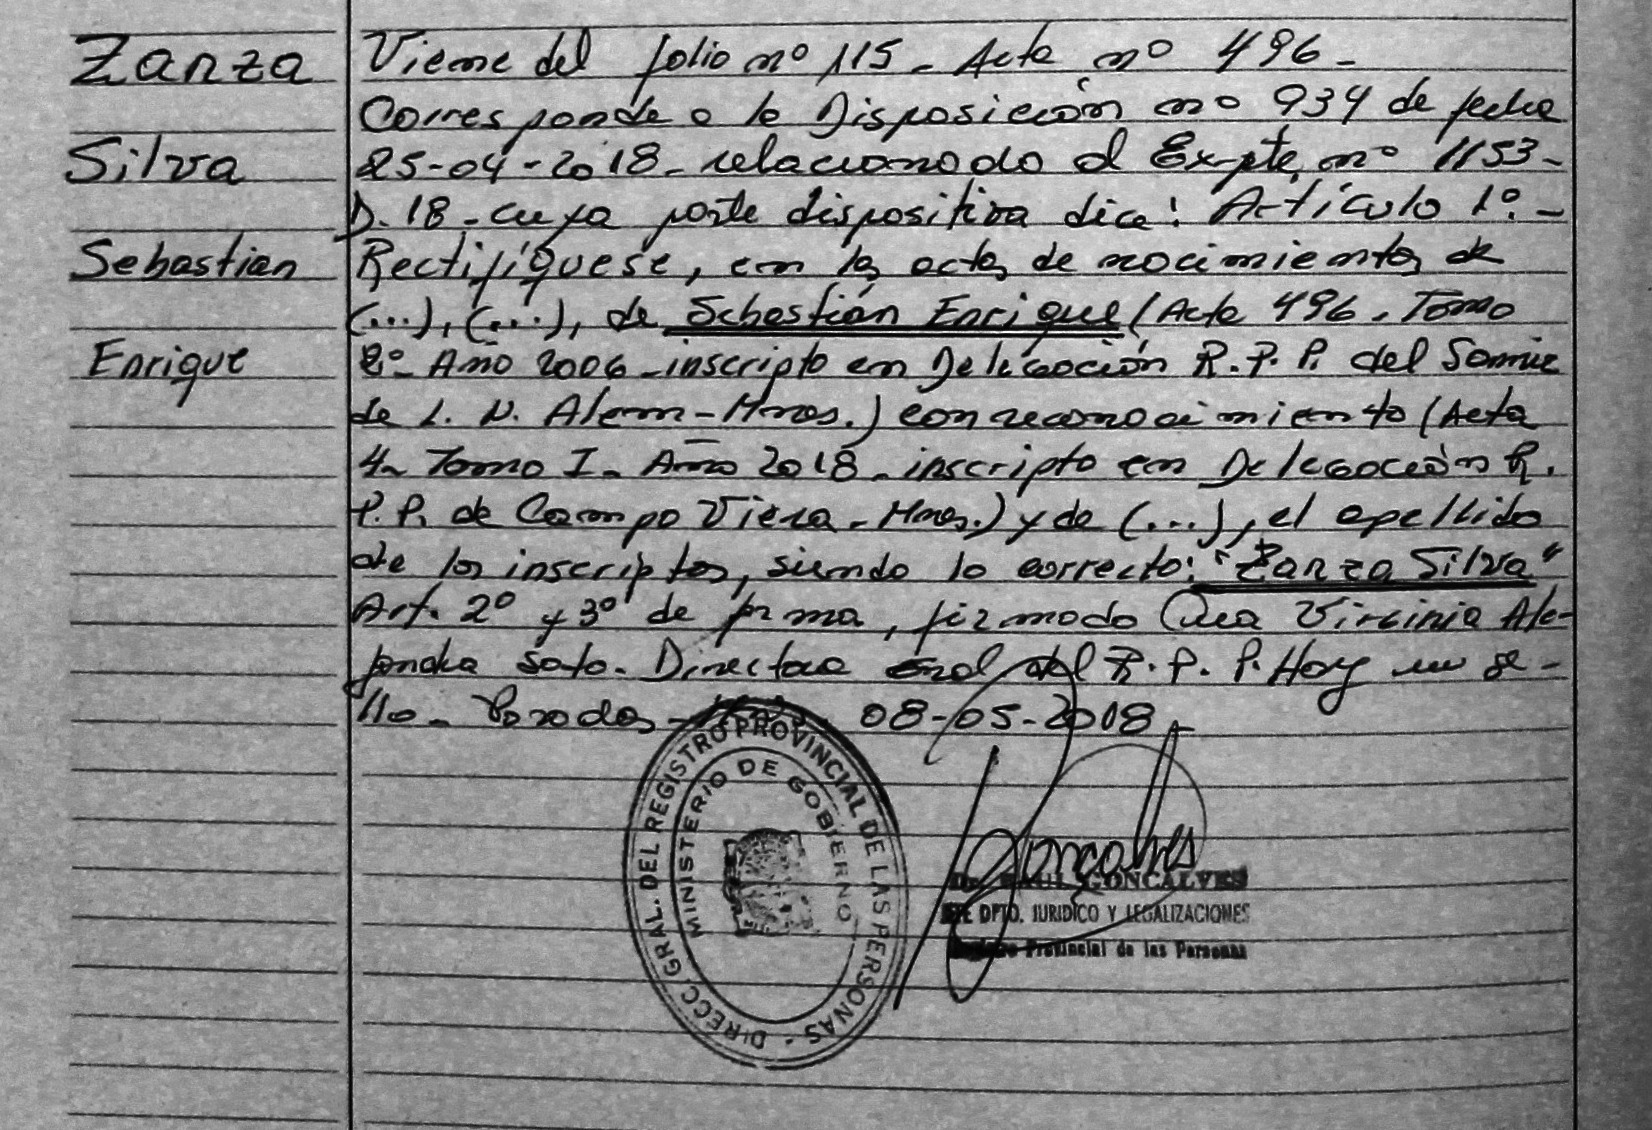 Zanza
Silva
Sebastian
Enrique
Viene del folio nº 115 - Acta nº 496 -
Corresponde a la Disposición nº 934 de fecha
25-04-2018 - relacionado al Expte. nº 1153-
D. 18 - cuya parte dispositiva dice: Artículo 1º. -
Rectifíquese, en las actas de nacimientos de
(...), (...), de Sebastián Enrique (Acta 496. Tomo
2º- Año 2006 - inscripto en Delegación R. P. P. del
de L. N. Alem - Mnes.) con reconocimiento (Acta
4- Tomo I - Año 2018 - inscripto en Delegación R.
P. P. de Campo Viera - Mnes.) y de (...), el apellido
de los inscriptos, siendo lo correcto: "Zanza Silva"
Art. 2º y 3º de forma, firmado Virginia Ale-
jandra Soto - Directora Gral del R. P. P. Hay un se-
llo - Posadas - 08-05-2018 -
DIRECC. GRAL. DEL REGISTRO PROVINCIAL DE LAS PERSONAS -
MINISTERIO DE GOBIERNO
Goncalves
Dr. RAUL GONCALVES
JEFE DPTO. JURIDICO Y LEGALIZACIONES
Registro Provincial de las Personas